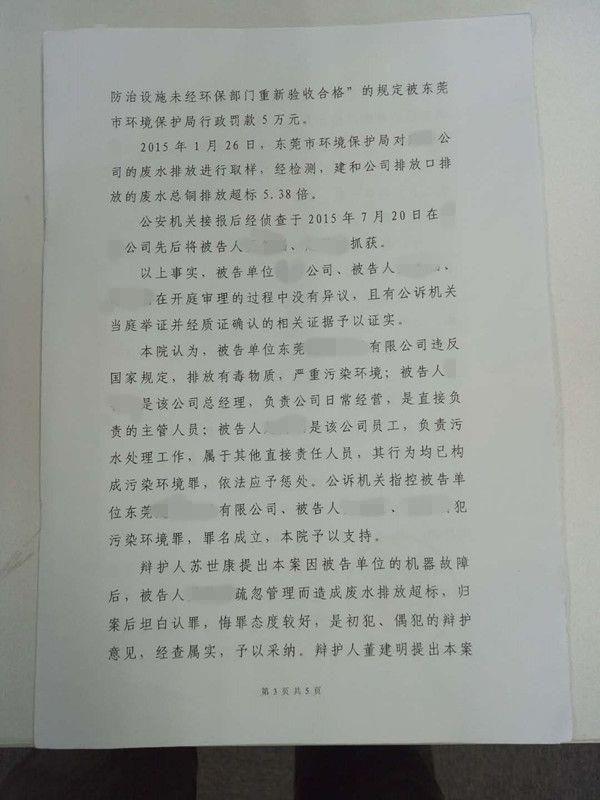 防治设施未经环保部门重新验收合格”的规定被东莞
市环境保护局行政罚款5万元。
2015年1月26日，东莞市环境保护局对 公
司的废水排放进行取样，经检测，建和公司排放口排
放的废水总铜排放超标5.38倍。
公安机关接报后经侦查于2015年7月20日在
公司先后将被告人 、 抓获。
以上事实，被告单位 公司、被告人 、
在开庭审理的过程中没有异议，且有公诉机关
当庭举证并经质证确认的相关证据予以证实。
本院认为，被告单位东莞 有限公司违反
国家规定，排放有毒物质，严重污染环境；被告人
是该公司总经理，负责公司日常经营，是直接负
责的主管人员；被告人 是该公司员工，负责污
水处理工作，属于其他直接责任人员，其行为均已构
成污染环境罪，依法应予惩处。公诉机关指控被告单
位东莞 有限公司、被告人 、 犯
污染环境罪，罪名成立，本院予以支持。
辩护人苏世康提出本案因被告单位的机器故障
后，被告人 疏忽管理而造成废水排放超标，归
案后坦白认罪，悔罪态度较好，是初犯、偶犯的辩护
意见，经查属实，予以采纳。辩护人董建明提出本案
第3页共5页